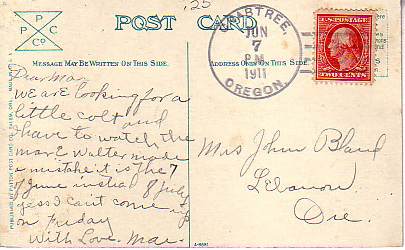 .25
POST CARD
P
P C
Co
MESSAGE MAY BE WRITTEN ON THIS SIDE.
ADDRESS ONLY ON THIS SIDE.
CRABTREE,
JUN
7
P.M.
1911
OREGON.
U.S. POSTAGE
TWO CENTS
Dear Mar
we are looking for a
little colt and
have to watch the
mar E Walter made
a mistake it is the 7
of June instid 8 July
gess I cant come up
on Friday
With Love. Mae.
Mrs John Bland
Lebanon
Ore.